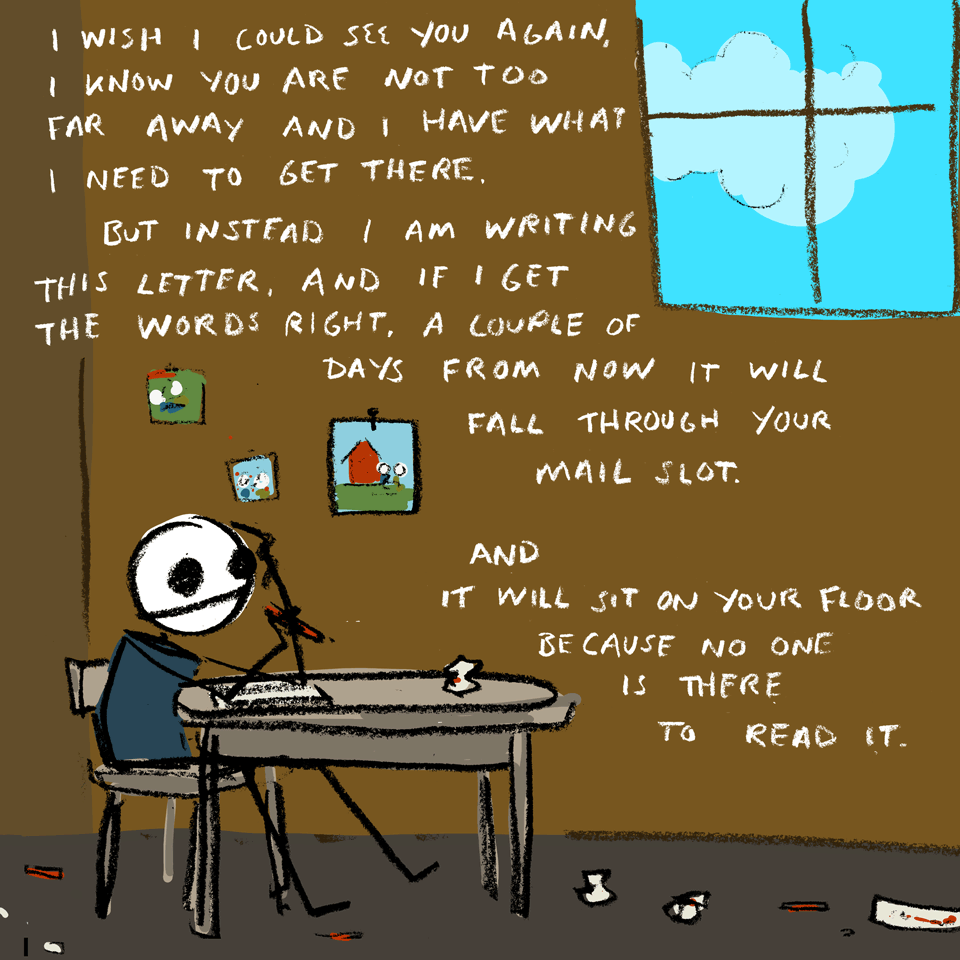 I WISH I COULD SEE YOU AGAIN,
I KNOW YOU ARE NOT TOO
FAR AWAY AND I HAVE WHAT
I NEED TO GET THERE.
BUT INSTEAD I AM WRITING
THIS LETTER, AND IF I GET
THE WORDS RIGHT, A COUPLE OF
DAYS FROM NOW IT WILL
FALL THROUGH YOUR
MAIL SLOT.
AND
IT WILL SIT ON YOUR FLOOR
BECAUSE NO ONE
IS THERE
TO READ IT.